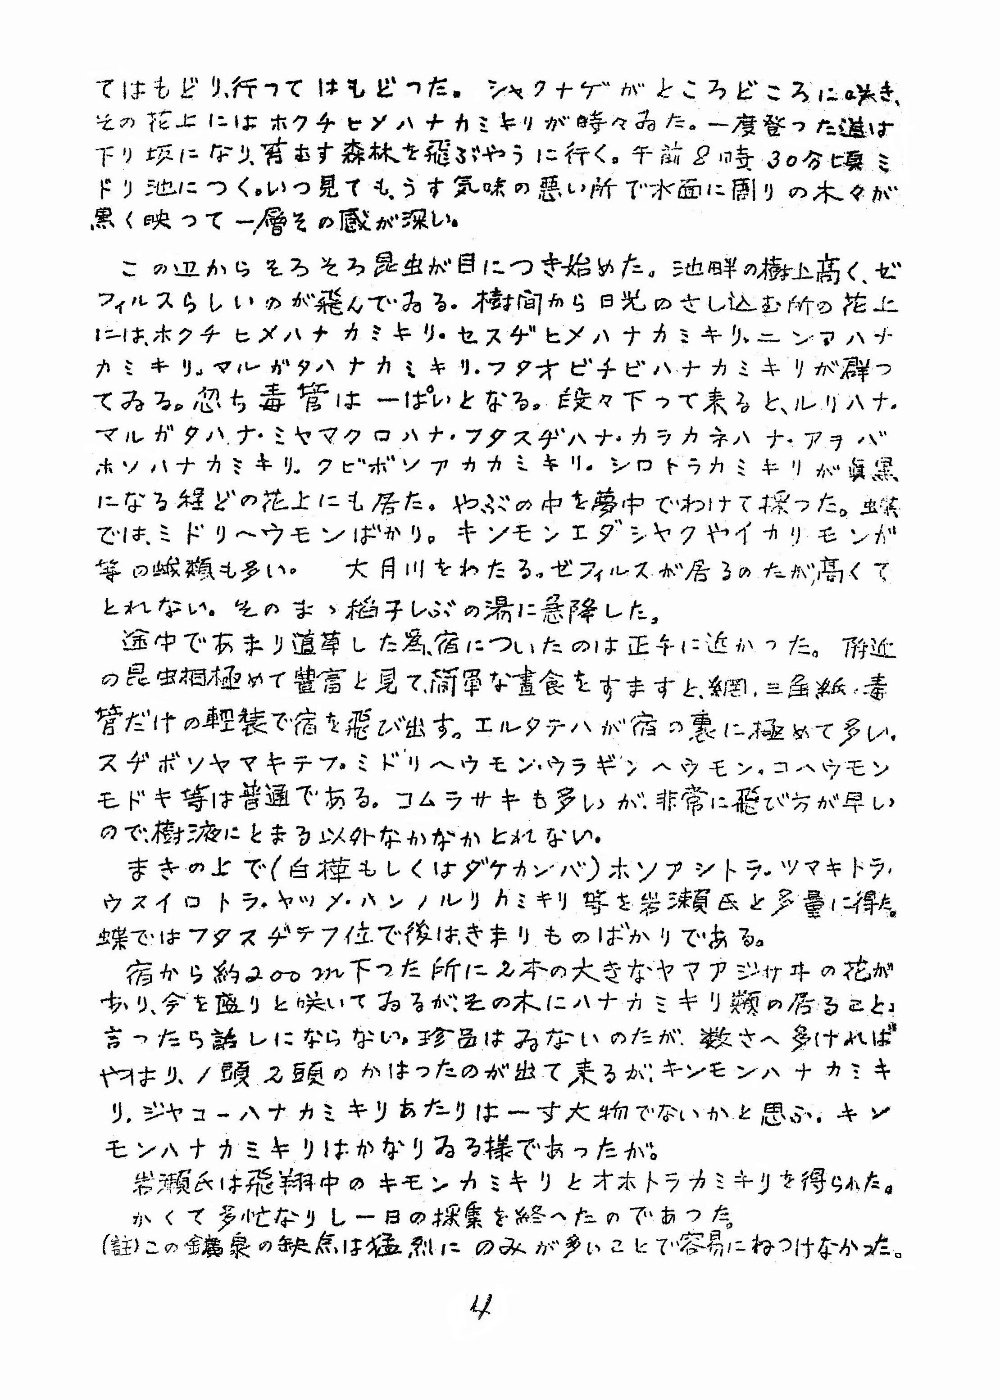 てはもどり、行つてはもどつた。シャクナゲがところどころに咲き、
その花上にはホクチヒメハナカミキリが時々ゐた。一度登つた道は
下り坂になり、苔むす森林を飛ぶやうに行く。午前8時30分頃ミ
ドリ池につく。いつ見ても、うす気味の悪い所で水面に周りの木々が
黒く映つて一層その感が深い。
この辺からそろそろ昆虫が目につき始めた。池畔の樹上高く、ゼ
フィルスらしいのが飛んでゐる。樹間から日光のさし込む所の花上
には、ホクチヒメハナカミキリ・セスヂヒメハナカミキリ、ニンフハナ
カミキリ。マルガタハナカミキリ・フタオビチビハナカミキリが群つ
てゐる。忽ち毒管は一ぱいとなる。段々下って来ると、ルリハナ・
マルガタハナ・ミヤマクロハナ・フタスヂハナ・カラカネハナ・アヲバ
ホソハナカミキリ。クビボソアカカミキリ。シロトラカミキリが眞黒
になる程どの花上にも居た。やぶの中を夢中でわけて採つた。蝶
では、ミドリヘウモンばかり。キンモンエダシヤクやイカリモンガ
等の蛾類も多い。 大月川をわたる。ゼフィルスが居るのたが、高くて
とれない。そのまゝ稲子しぶの湯に急降した。
途中であまり道草した為、宿についたのは正午に近かつた。附近
の昆虫相極めて豊富と見て、簡単な晝食をすますと、網.三角紙.毒
管だけの軽装で宿を飛び出す。エルタテハが宿の裏に極めて多い.
スヂボソヤマキテフ・ミドリヘウモン・ウラギンヘウモン.コハウモン
モドキ等は普通である。コムラサキも多いが、非常に飛び方が早い
ので、樹液にとまる以外なかなかとれない。
まきの上で(白樺もしくはダケカンバ)ホソアシトラ・ツマキトラ・
ウスイロトラ・ヤツメ・ハンノルリカミキリ等を岩瀬氏と多量に得た。
蝶ではフタスヂテフ位で後は、きまりものばかりである。
宿から約200m下つた所に2本の大きなヤマアジサヰの花が
あり、今を盛りと咲いてゐるが、その木にハナカミキリ類の居ること、
言つたら話しにならない。珍品はゐないのたが、数さへ多ければ
やはり、1頭2頭のかはったのが出て来るが、キンモンハナカミキ
リ.ジヤコーハナカミキリあたりは一寸大物でないかと思ふ.キン
モンハナカミキリはかなりゐる様であったが。
岩瀬氏は飛翔中のキモンカミキリとオホトラカミキリを得られた。
かくて多忙なりし一日の採集を終へたのであつた。
(註)この鑛泉の缺点は猛烈にのみが多いことで容易にねつけなかった。
4